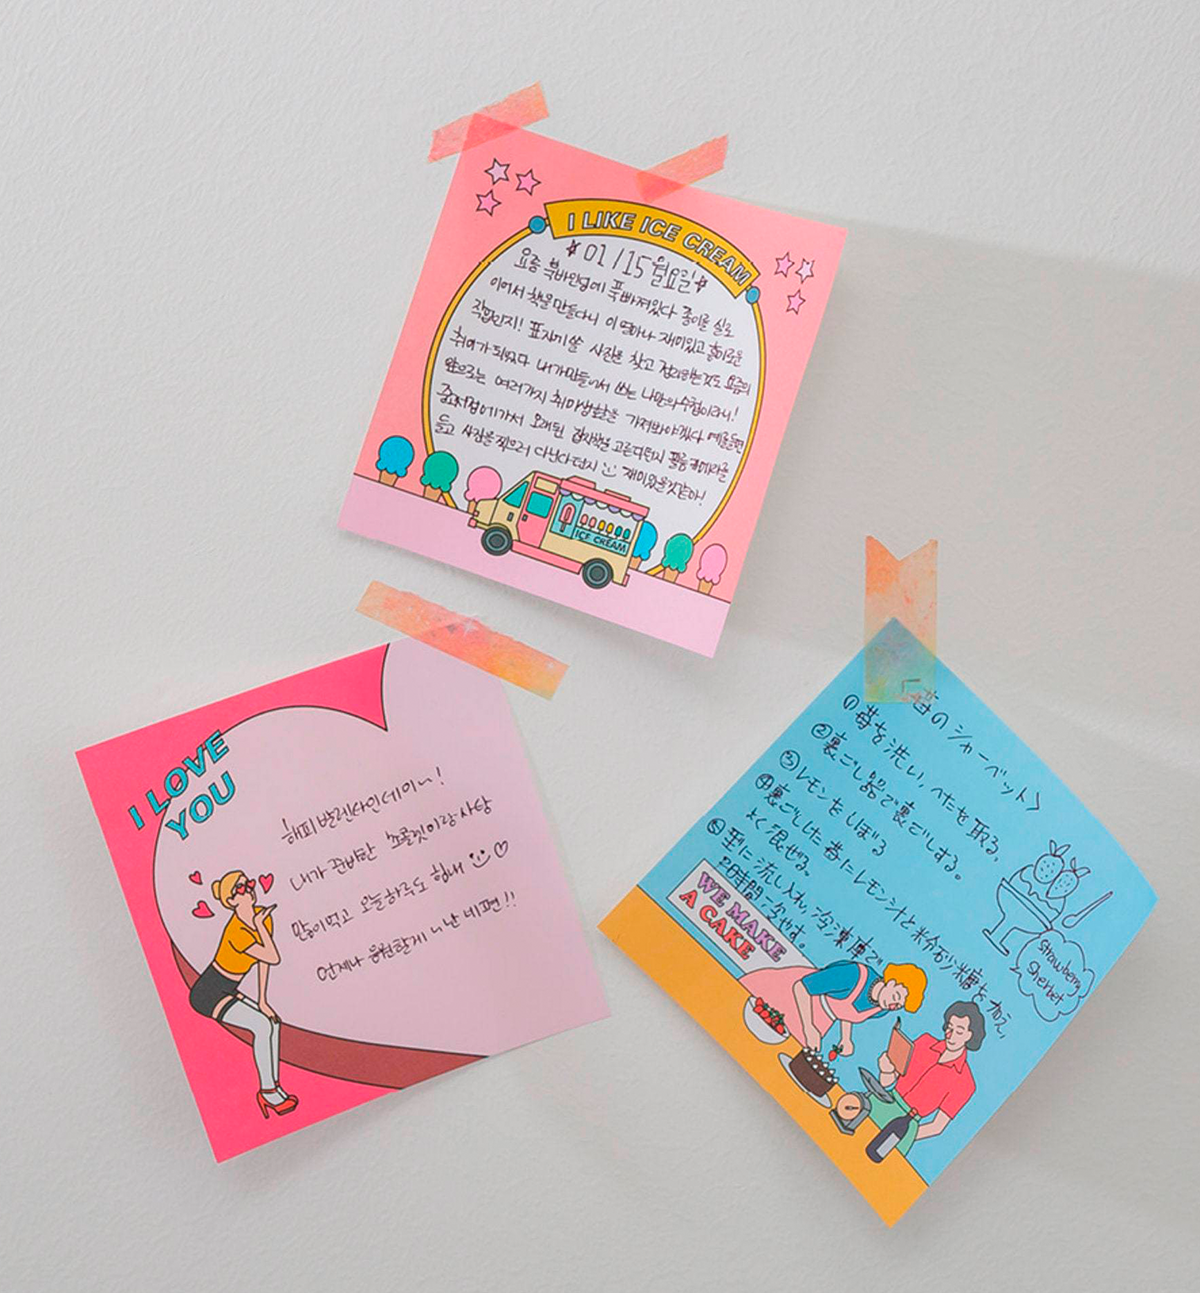 I LIKE ICE CREAM
01/15 월요일
요즘 북바인딩에 푹빠져있다 종이를 실로
이어서 책을만들다니 이 얼마나 재미있고 흥미로운
작업인지! 표지가 쓸 사진을 찾고 정리하는것도 요즘의
취미가 되었다 내가만들어서 쓰는 나만의수첩이라니!
앞으로는 여러가지 취미생활을 가져봐야겠다 예를들면
중고서점에가서 오래된 잡지책을 고른다던지 필름카메라를
들고 사진을찍으러 다닌다던지 재미있을것같아!
ICE CREAM
I LOVE
YOU
해피 발렌타인데이~!
내가 준비한 초콜릿이랑 사탕
많이먹고 오늘하루도 힘내
언제나 응원할게 난 네편!!
苺のシャーベット〉
①苺を洗い、へたを取る。
②裏ごし器で裏ごしする。
③レモンをしぼる
④裏ごしした苺にレモン汁と粉砂糖を加え、
よく混ぜる。
⑤型に流し入れ、冷凍庫で
2時間冷やす。
Strawberry
Sherbet
WE MAKE
A CAKE